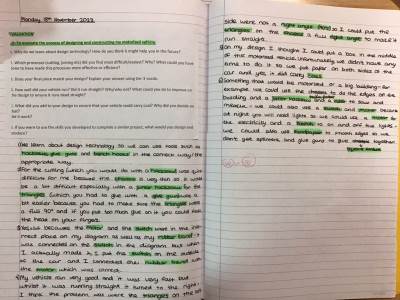 Monday, 13th November 2023
EVALUATION
LO: To evaluate the process of designing and constructing my motorised vehicle.
1. Why do we learn about design technology? How do you think it might help you in the future?
2. Which processes (cutting, joining etc) did you find most difficult/easiest? Why? What could you have
done to have made this processes more effective or efficient?
3. Does your final piece match your design? Explain your answer using the 3 words.
4. How well did your vehicle run? Did it run straight? Why/why not? What could you do to improve on
the design to ensure it runs more straight?
5. What did you add to your design to ensure that your vehicle could carry load? Why did you decide on
Did
it work?
6. If you want to use the skills you developed to complete a similar project, what would you design and
make?
1) We learn about design technology so we can use tools such as
hacksaws, glue guns and bench hooks in the correct way/the
appropriate way.
2) For the cutting (which you would do with a hacksaw) was quite
difficult for me because the is very thin so it would
be a bit difficult especially with a junior hacksaw for the
triangles (which you had to use with a glue gun) was a
bit easier because you had to make sure the triangles were
a full 90° and if you put too much glue on it you could feel
the heat on your fingers.
3) Yes, its because the motor and the switch went in the
rect place on my diagram as well as my rubber band. It
was connected on the switch in the diagram but when
I actually made it, I put the switch on the outside
of the car and I connected the rubber band with
the motor which was correct.
4) My vehicle ran very good and it was very fast but
whilst it was running straight it turned to the right.
I think the problem was were the triangles on the left
side were not a right angle (90°) so I could put the
triangles on the a full right angle to make it
run straight.
5) On my design I thought I could put a box in the middle
of the motorised vehicle. Unfortunately we didn't have any
time to do it so we put paper on both sides of the
car and yes, it did carry
6) Something that would be motorised or a big building: for
example, we could use the to do the edges of the
building and a junior hacksaw and a to saw and
measure. We could also use a switch and motor because
at night you will need lights so we could use a motor for
the electricity and a switch to on and off the lights.
We could also use sandpaper to smooth edges so we
don't get splinters, and glue guns to